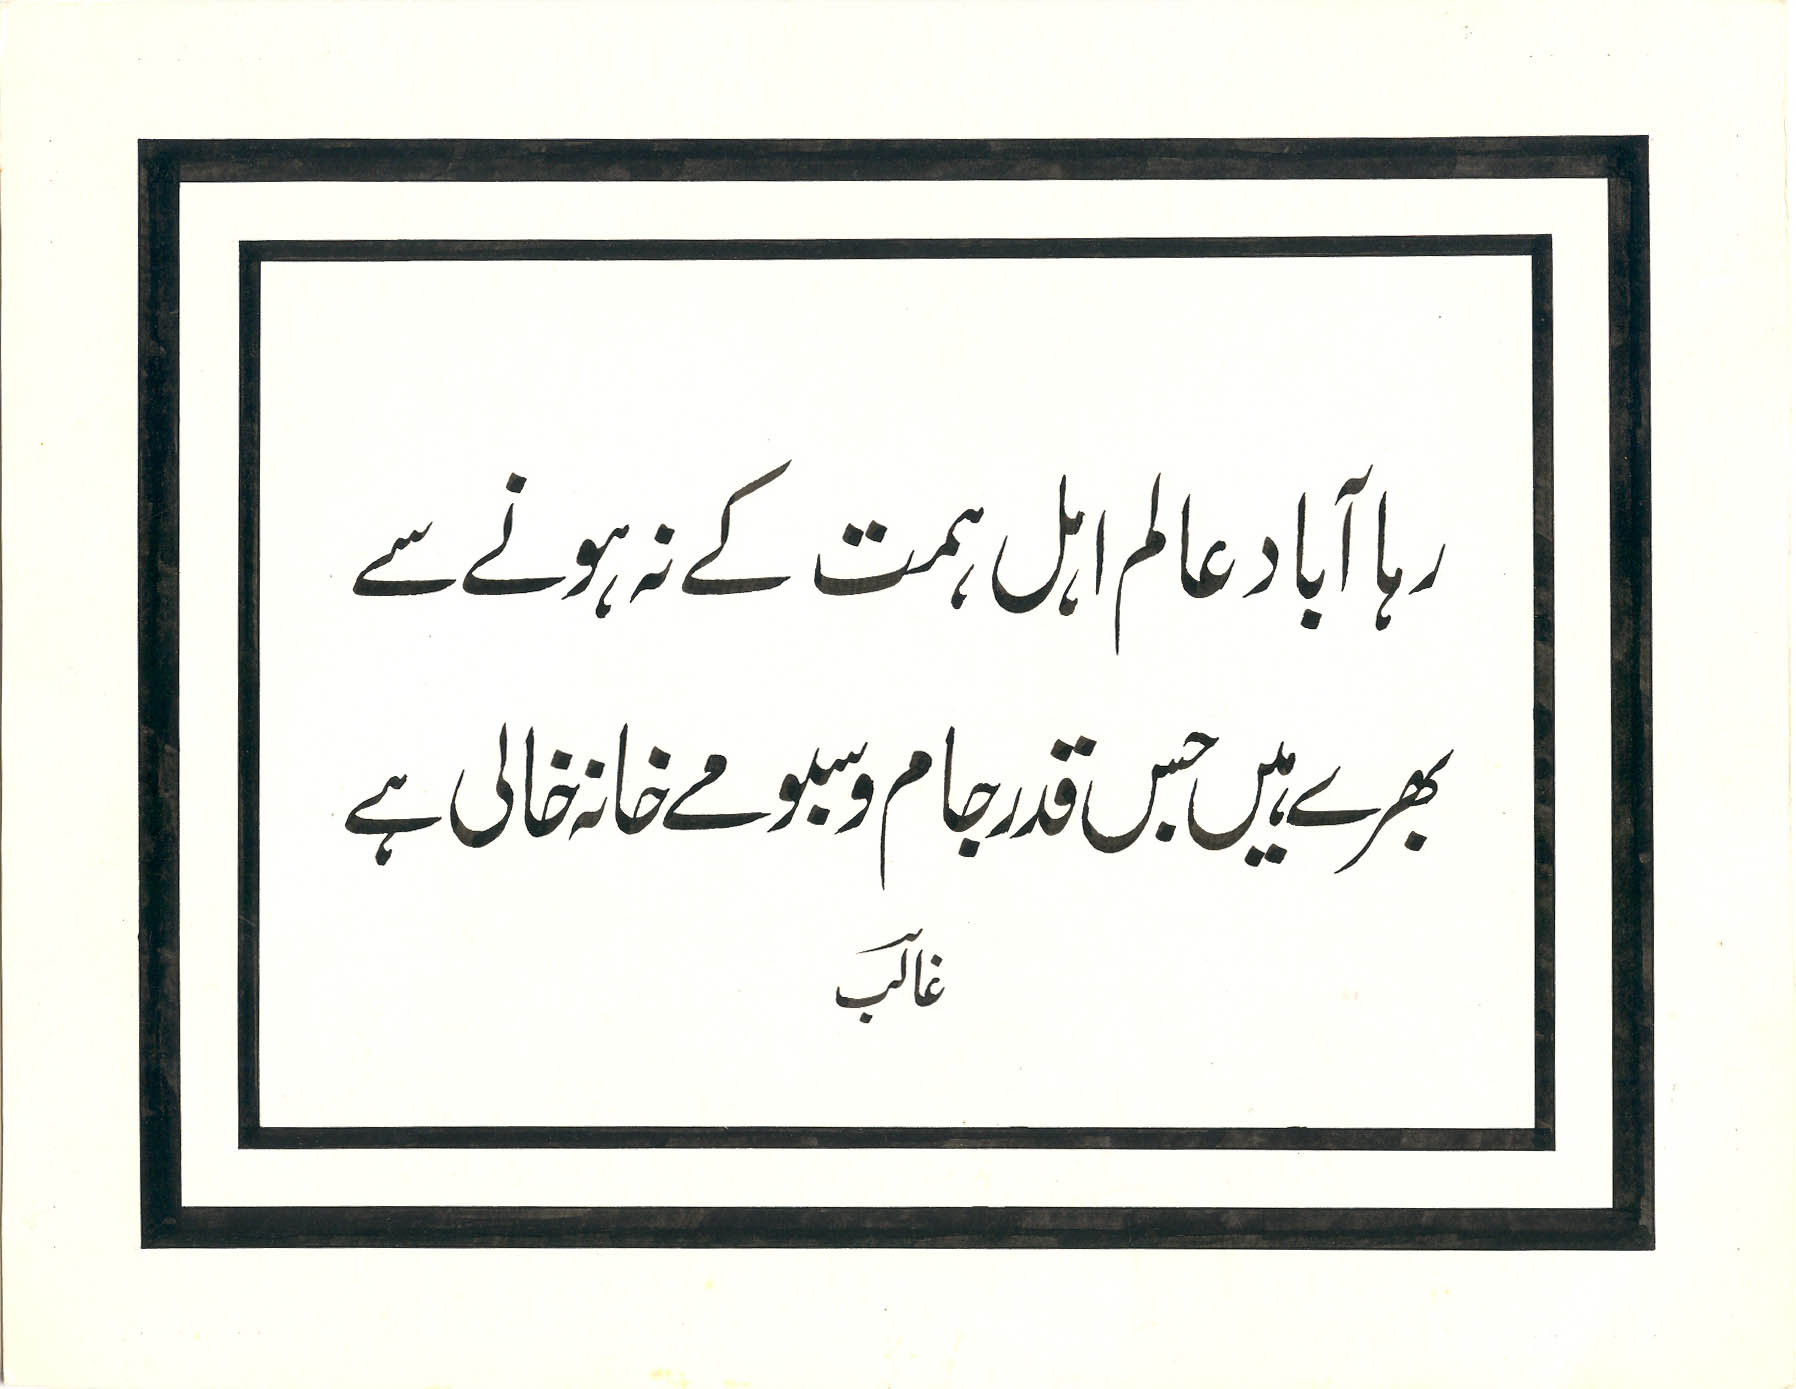 رہا آباد عالم اہل ہمت کے نہ ہونے سے
بھرے ہیں جس قدر جام و سبو مے خانہ خالی ہے
غالب